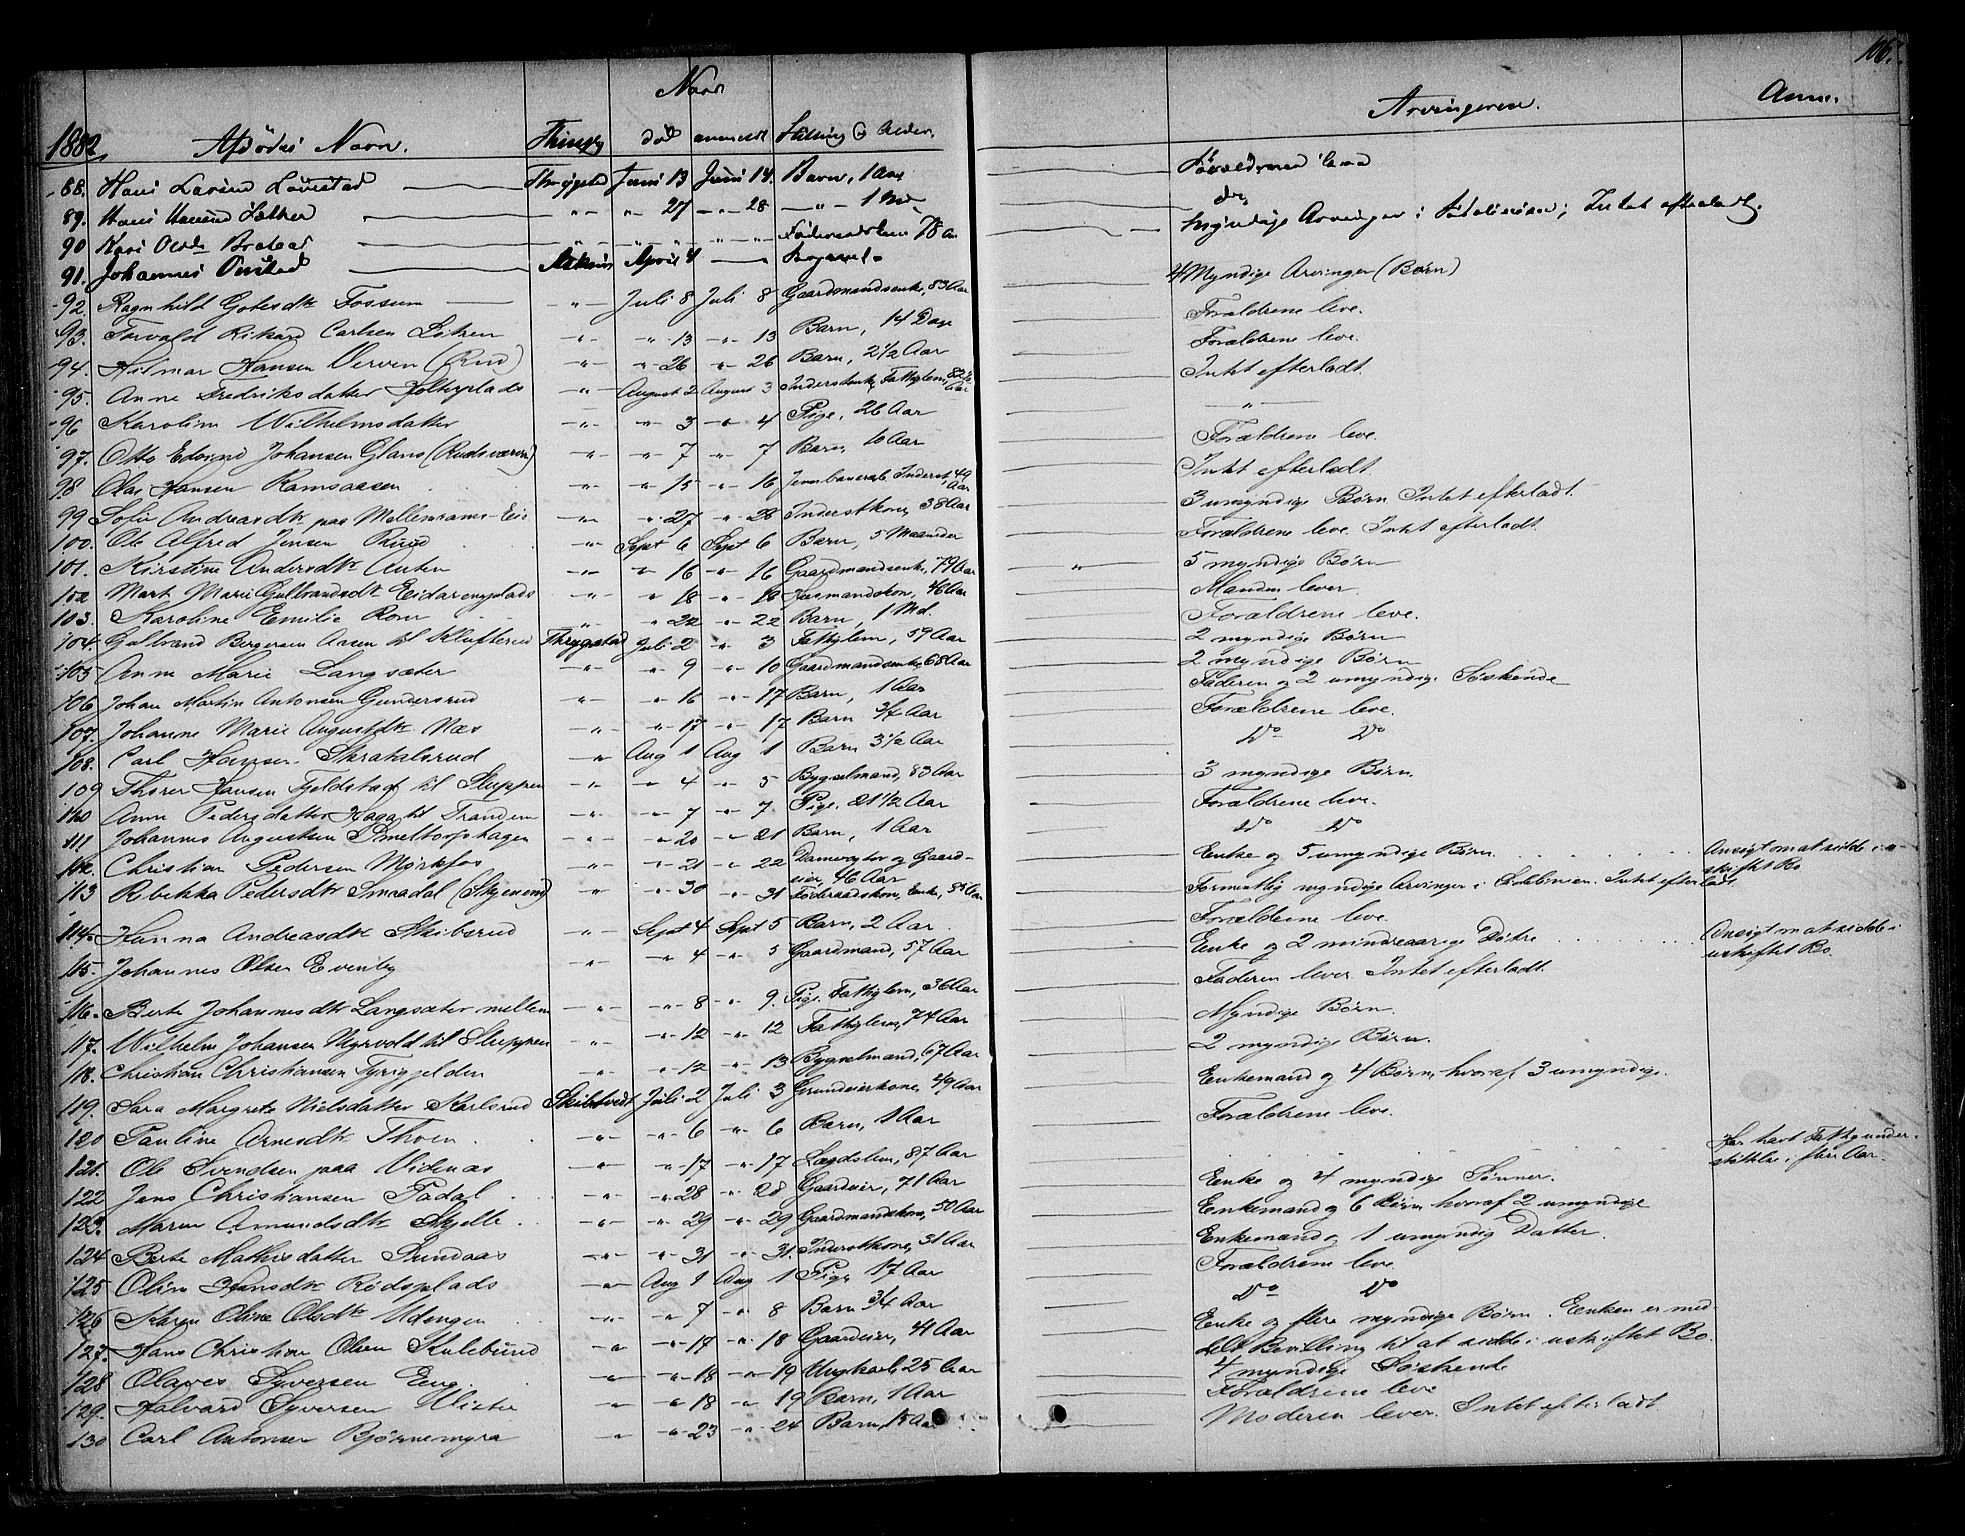 106.
Naar
1882. Afdødes Navn. Thinglag død anmeldt Stilling og Alder. Arvingerne. Anm.
88. Hans Larsen Thrygstad Juni 13 Juni 14. Barn, 1 Aar Forældrene leve
89. Hans Hansen Sæther " " 27 " 28 " 1 Md. do
90 Kari Olsdr Bråtaas " " " " " " Føderaadslem 78 a. Myndige Arvinger i ; Intet efterladt.
91. Johannes Onstad Askim April 4 4 Myndige Arvinger (Børn)
92. Ragnhild Fossum " Juli 8 Juli 8 Gaardmandsenke, 83 Aar
93. Torvald Rikard Carlsen " " 13 " 13 Barn, 14 Dage Forældrene leve.
94. Hilmar Hansen Verven (Rud) " " 26 " 26 Barn, 2 1/2 Aar Forældrene leve.
95. Anne Fredriksdatter Holterplads " August 2 August 3 Inderstenke, Fattiglem, 82 1/2 Aar Intet efterladt.
96 Karoline Wilhelmsdatter " " 3 " 4 Pige, 26 Aar "
97. Otto Edvind Johansen Glans (Rudsværen) " " 7 " 7 Barn, 10 Aar Forældrene leve.
98 Olai Hansen Ramsaasen " " 15 " 16 Inderst, 49 Aar Intet efterladt.
99 Sofie Andreasdtr paa Mellemrams-Eie " " 27 " 28 Inderstkone, 38 Aar 3 umyndige Børn Intet efterladt.
100. Ole Alfred Jensen Ruud " Sept 6 Sept 6 Barn, 5 Maaneder Forældrene leve. Intet efterladt.
101. Kirstine Andersdtr Auten " " 16 " 16 Gaardmandsenke, 79 Aar " 5 myndige Børn
102 Mart. Marie Gulbrandsdtr Eidarengplads " " 18 " 18 Husmandskone, 46 Aar Manden lever.
103. Karoline Emilie Rom " " 22 " 22 Barn, 1 Md. Forældrene leve.
104. Gulbrand Birgersen Aasen til Klufterud Thrygstad Juli 2 " 3 Fattiglem, 59 Aar 2 myndige Børn
105 Anne Marie Langsæter " " 9 " 10 Gaardmandsenke, 68 Aar 2 myndige Børn
106 Johan Martin Antonsen Gundersrud " " 16 " 17 Barn, 1 Aar Faderen og 2 umyndige Søskende
107. Johanne Marie Augustdtr Næs " " 17 " 17 Barn 3/4 Aar Forældrene leve.
108. Carl Hansen Skrakalsrud " Aug 1 Aug 1 Barn 3 1/2 Aar Do Do
109 Thorer Hansen Fjeldstad til Sleppen " " 4 " 5 Bygselmand, 83 Aar 3 myndige Børn.
110 Anne Pedersdatter Haga til Trandem " " 7 " 7 Pige. 21 1/2 Aar Forældrene leve.
111 Johannes Augustsen Smeltorphagen " " 20 " 21 Barn, 1 Aar Do Do
112. Christian Pedersen Mørkfos " " 21 " 22 Damvogter og Gaardeier, 46 Aar Enke og 5 umyndige Børn. Ansøgt om at sidde i uskiftet Bo
113 Rebekka Pedersdtr Smaadal (Skjennerud) " " 30 " 31 Føderaadskone, Enke, 83 Aar Formentlig myndige Arvinger i . Intet efterladt.
114. Hanna Andreasdtr Skibsrud " Sept 4 Sept 5 Barn, 2 Aar. Forældrene leve.
115. Johannes Olsen Evenby " " 4 " 5 Gaardmand, 57 Aar Enke og 2 mindreaarige Døtre Ansøgt om at sidde i uskiftet Bo.
116. Berte Johannesdtr Langsæter mellem " " 8 " 9. Pige. Fattiglem, 36 Aar Faderen lever. Intet efterladt.
117. Wilhelm Johansen Myrvold til Sleppen " " 12 " 12 Fattiglem, 74 Aar Myndige Børn.
118. Christian Christiansen Tyrigjelden " 12 " 13 Bygselmand, 67 Aar 2 myndige Børn.
119. Sara Margrete Nielsdatter Karlsrud Skibtvedt Juli 2 Juli 3 Grundeierkone, 49 Aar Enkemand og 4 Børn, hvoraf 3 umyndige.
120 Pauline Arnesdtr Thoen " " 6 " 6 Barn, 1 Aar Forældrene leve.
121. Ole Svendsen paa Videnæs " " 17 " 17 Lægdslem, 87 Aar Har havt Fattigunderstøttelse i flere Aar.
122 Jens Christiansen Fadal " " 28 " 28 Gaardeier, 71 Aar Enke og 4 myndige Sønner.
123. Maren Amundsdtr Skjelle " " 29 " 29 Gaardmandskone, 50 Aar Enkemand og 6 Børn hvoraf 2 umyndige
124 Berte Mathisdatter Sundaas " " 31 " 31. Inderstkone, 31 Aar Enkemand og 1 umyndig Datter.
125 Oline Hansdtr Rødsplads " Aug 1 Aug 1 Pige 17 Aar Forældrene leve
126 Karen Oline Olsdtr Udengen " " 7 " 8 Barn 3/4 Aar Do Do
127. Hans Christian Olsen Skulebund " " 17 " 18 Gaardeier, 41 Aar Enke og flere myndige Børn. Enken er meddelt Bevilling til at sidde i uskiftet Bo.
128 Olaves Syversen Eng. " " 18 " 19 Ungkarl, 25 Aar 4 myndige Søskende
129. Halvard Syversen " " 18 " 19 Barn, 1 Aar Forældrene leve
130 Carl Antonsen Bjørnemyra " " 23 " 24 Barn, 15 Aar Moderen lever. Intet efterladt